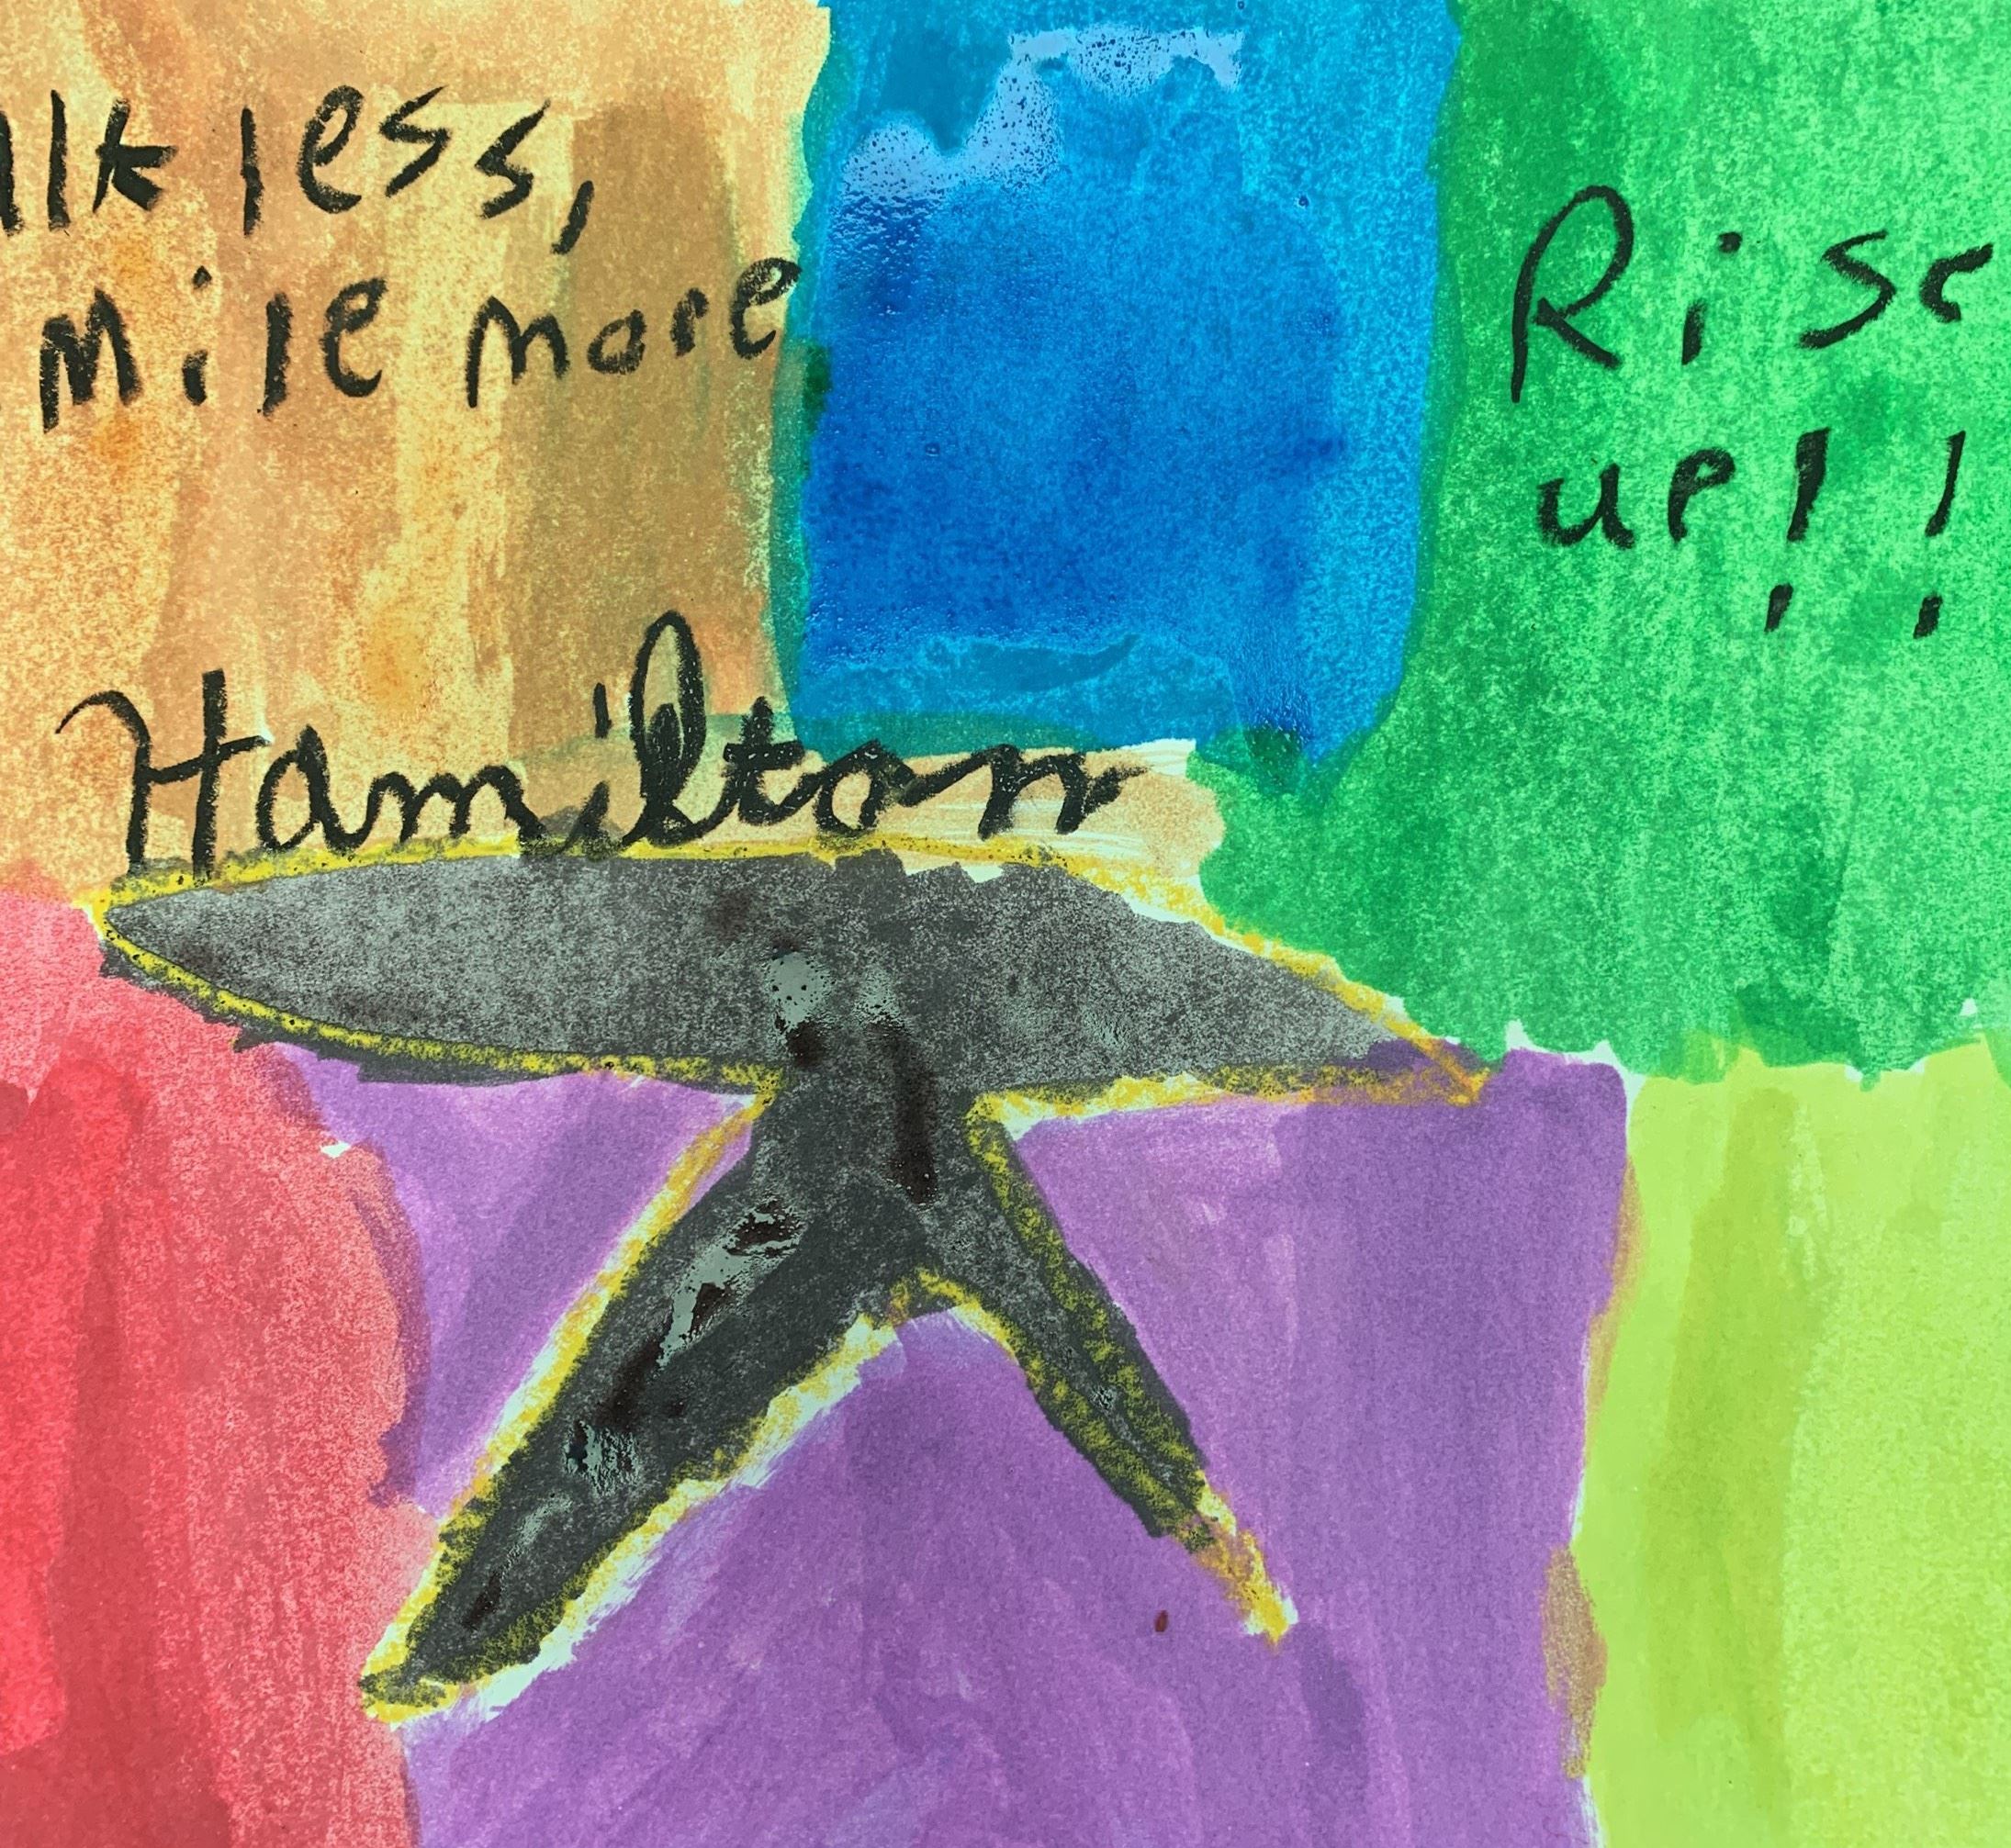 alk less,
mile more
Rise
up!!
Hamilton